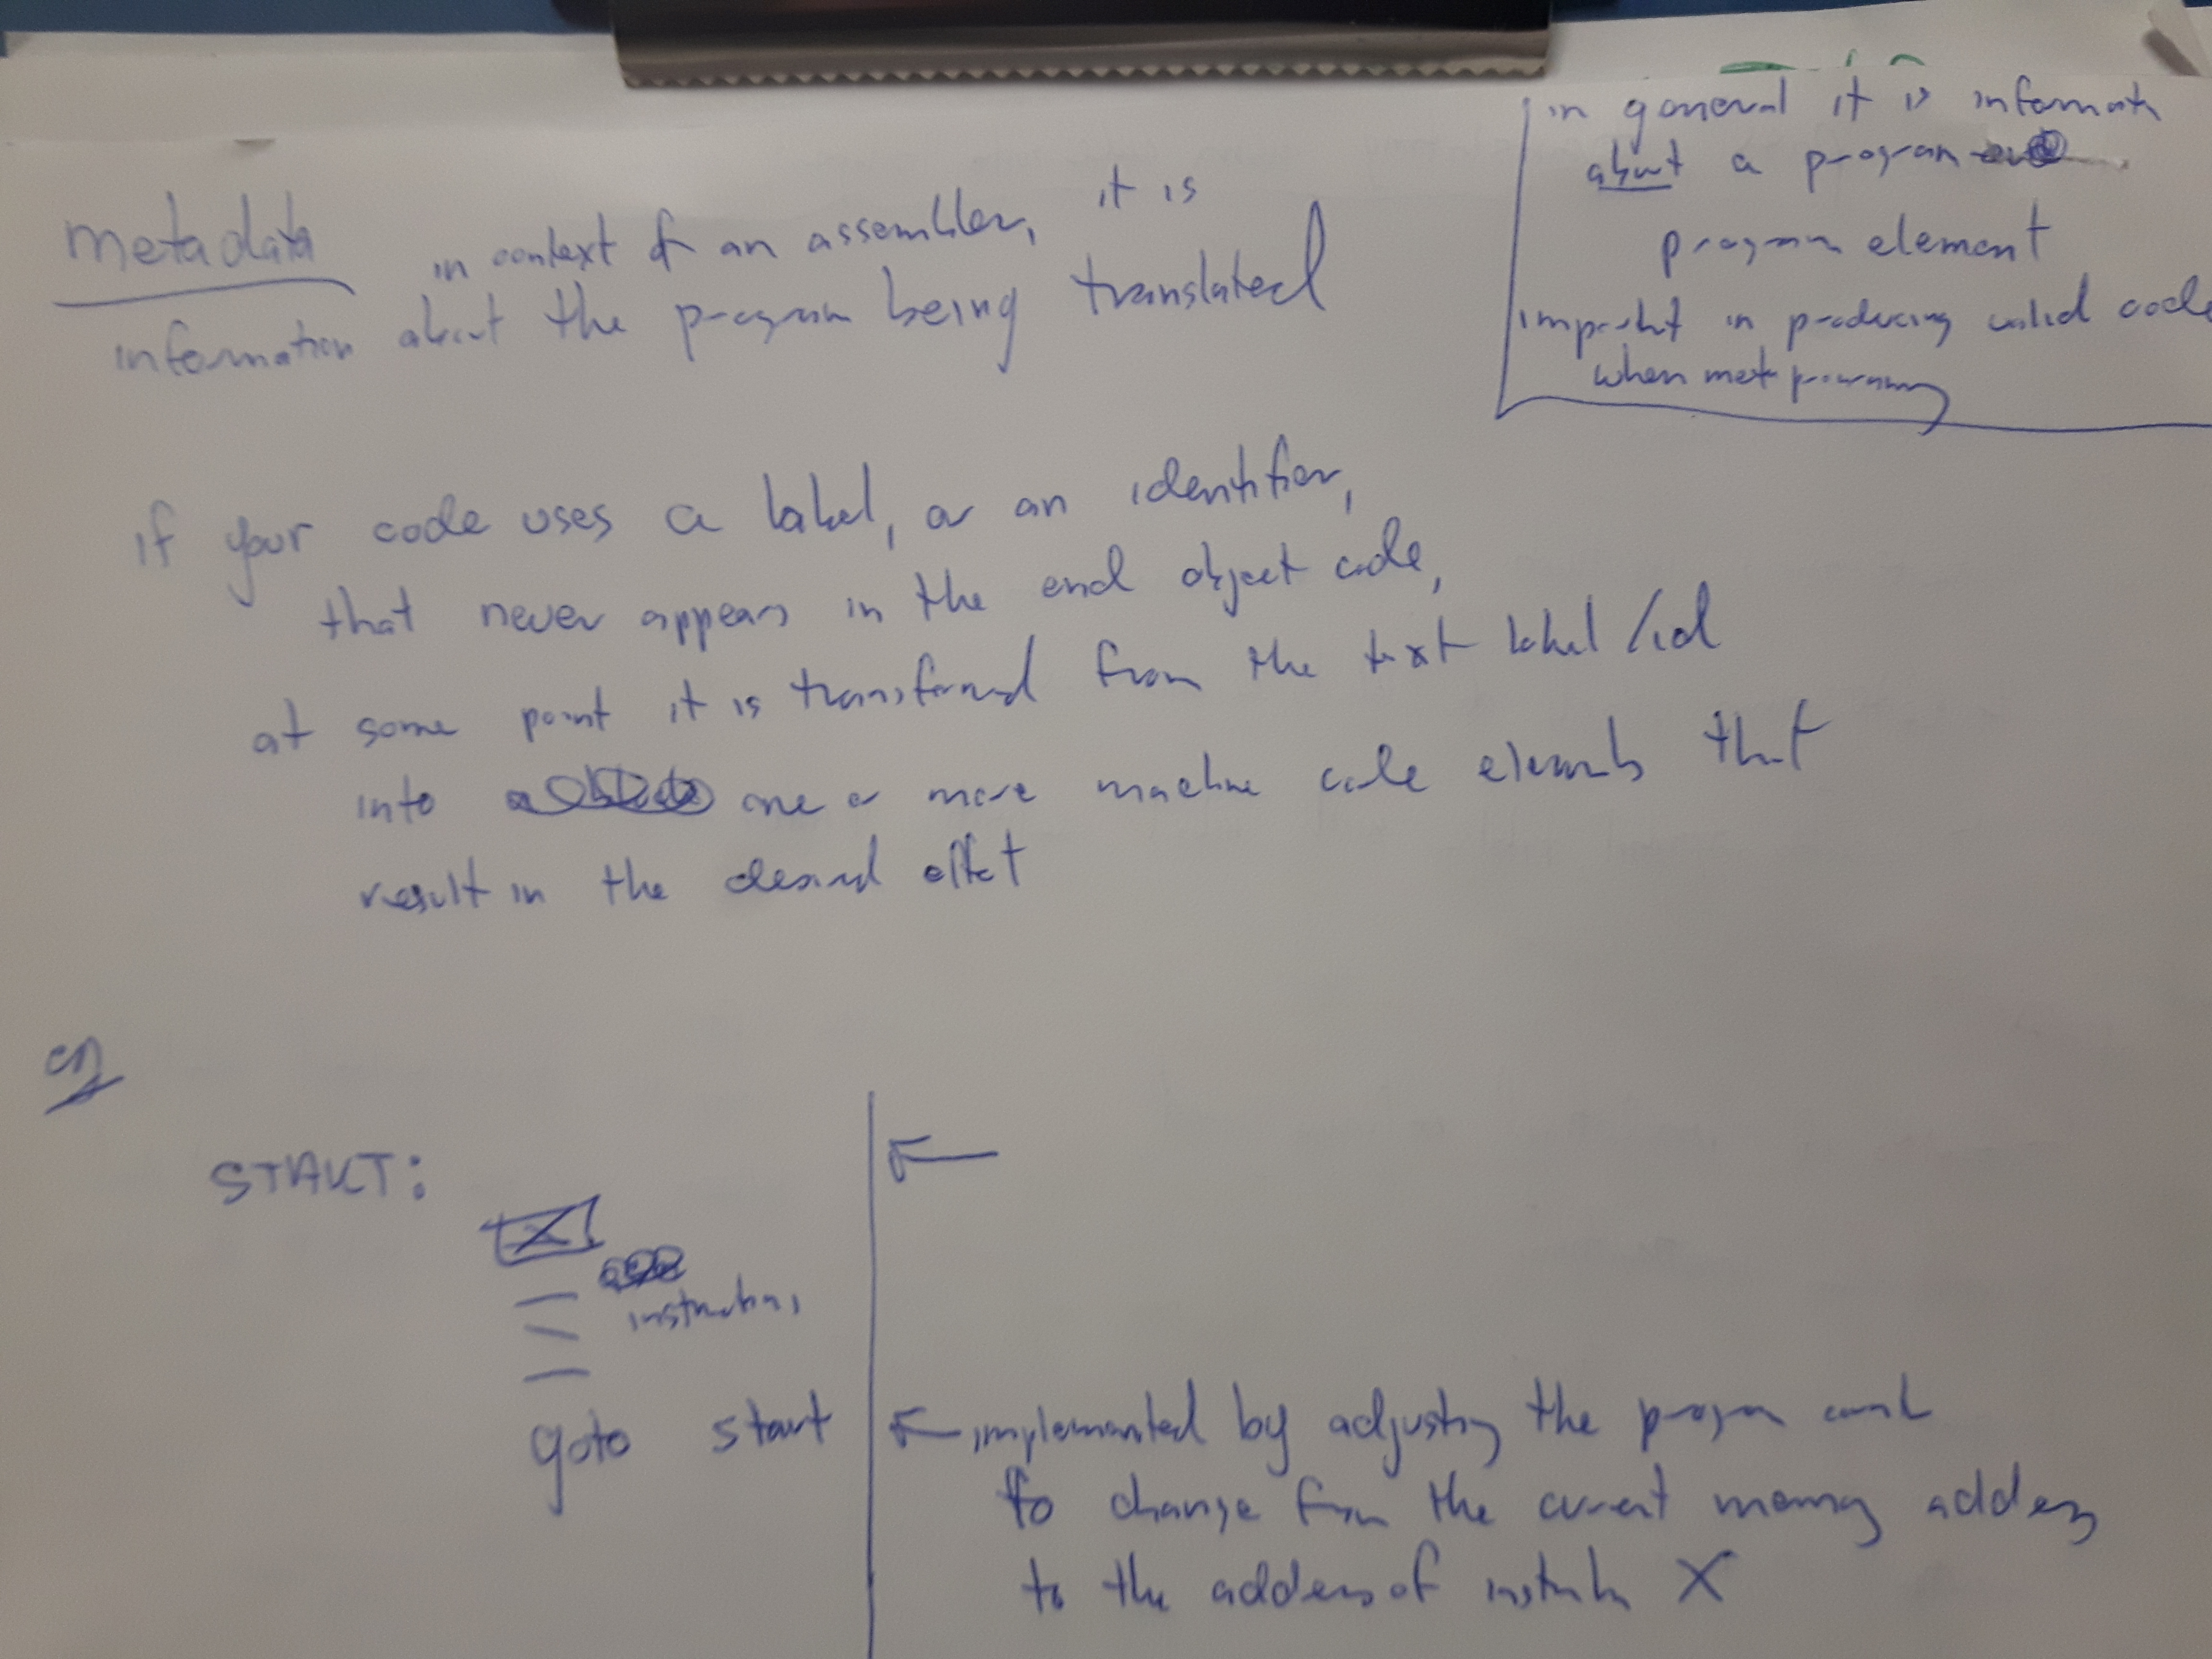 in general it is informati
about a program
program element
important in producing valid code
when meta programming
metadata in context of an assembler, it is
information about the program being translated
if your code uses a label, or an identifier,
that never appears in the end object code,
at some point it is transformed from the text label/id
into one or more machine code elements that
result in the desired effect
eg
START:
X
instructions
goto start
implemented by adjusting the program count
to change from the current memory address
to the address of instruction X